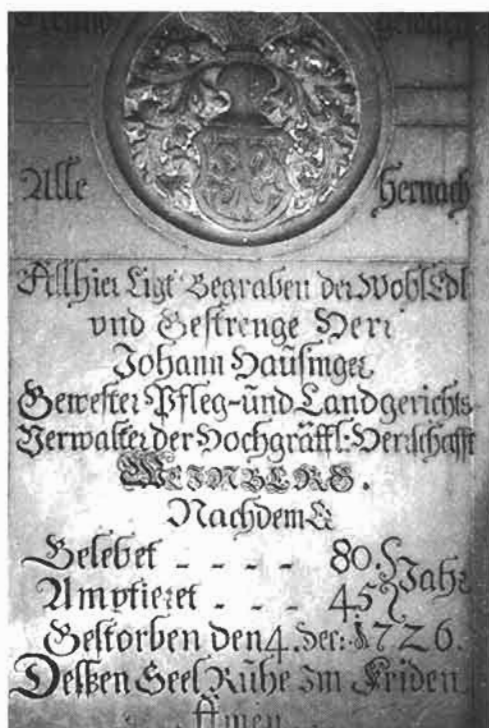 Alle Hernach
Allhier Ligt Begraben der Wohl Edl
vnd Gestrenge Herr
Johann Hausinger
Gewester Pfleg-und Landgerichts
Verwalter der Hochgräffl: Herrschafft
WEINBERG.
Nachdem Er
Gelebet _ _ _ _ 80. Jahr
Amptieret _ _ _ 45
Gestorben den 4. Dec: 1726.
Deßen Seel Ruhe Im Friden
Amen